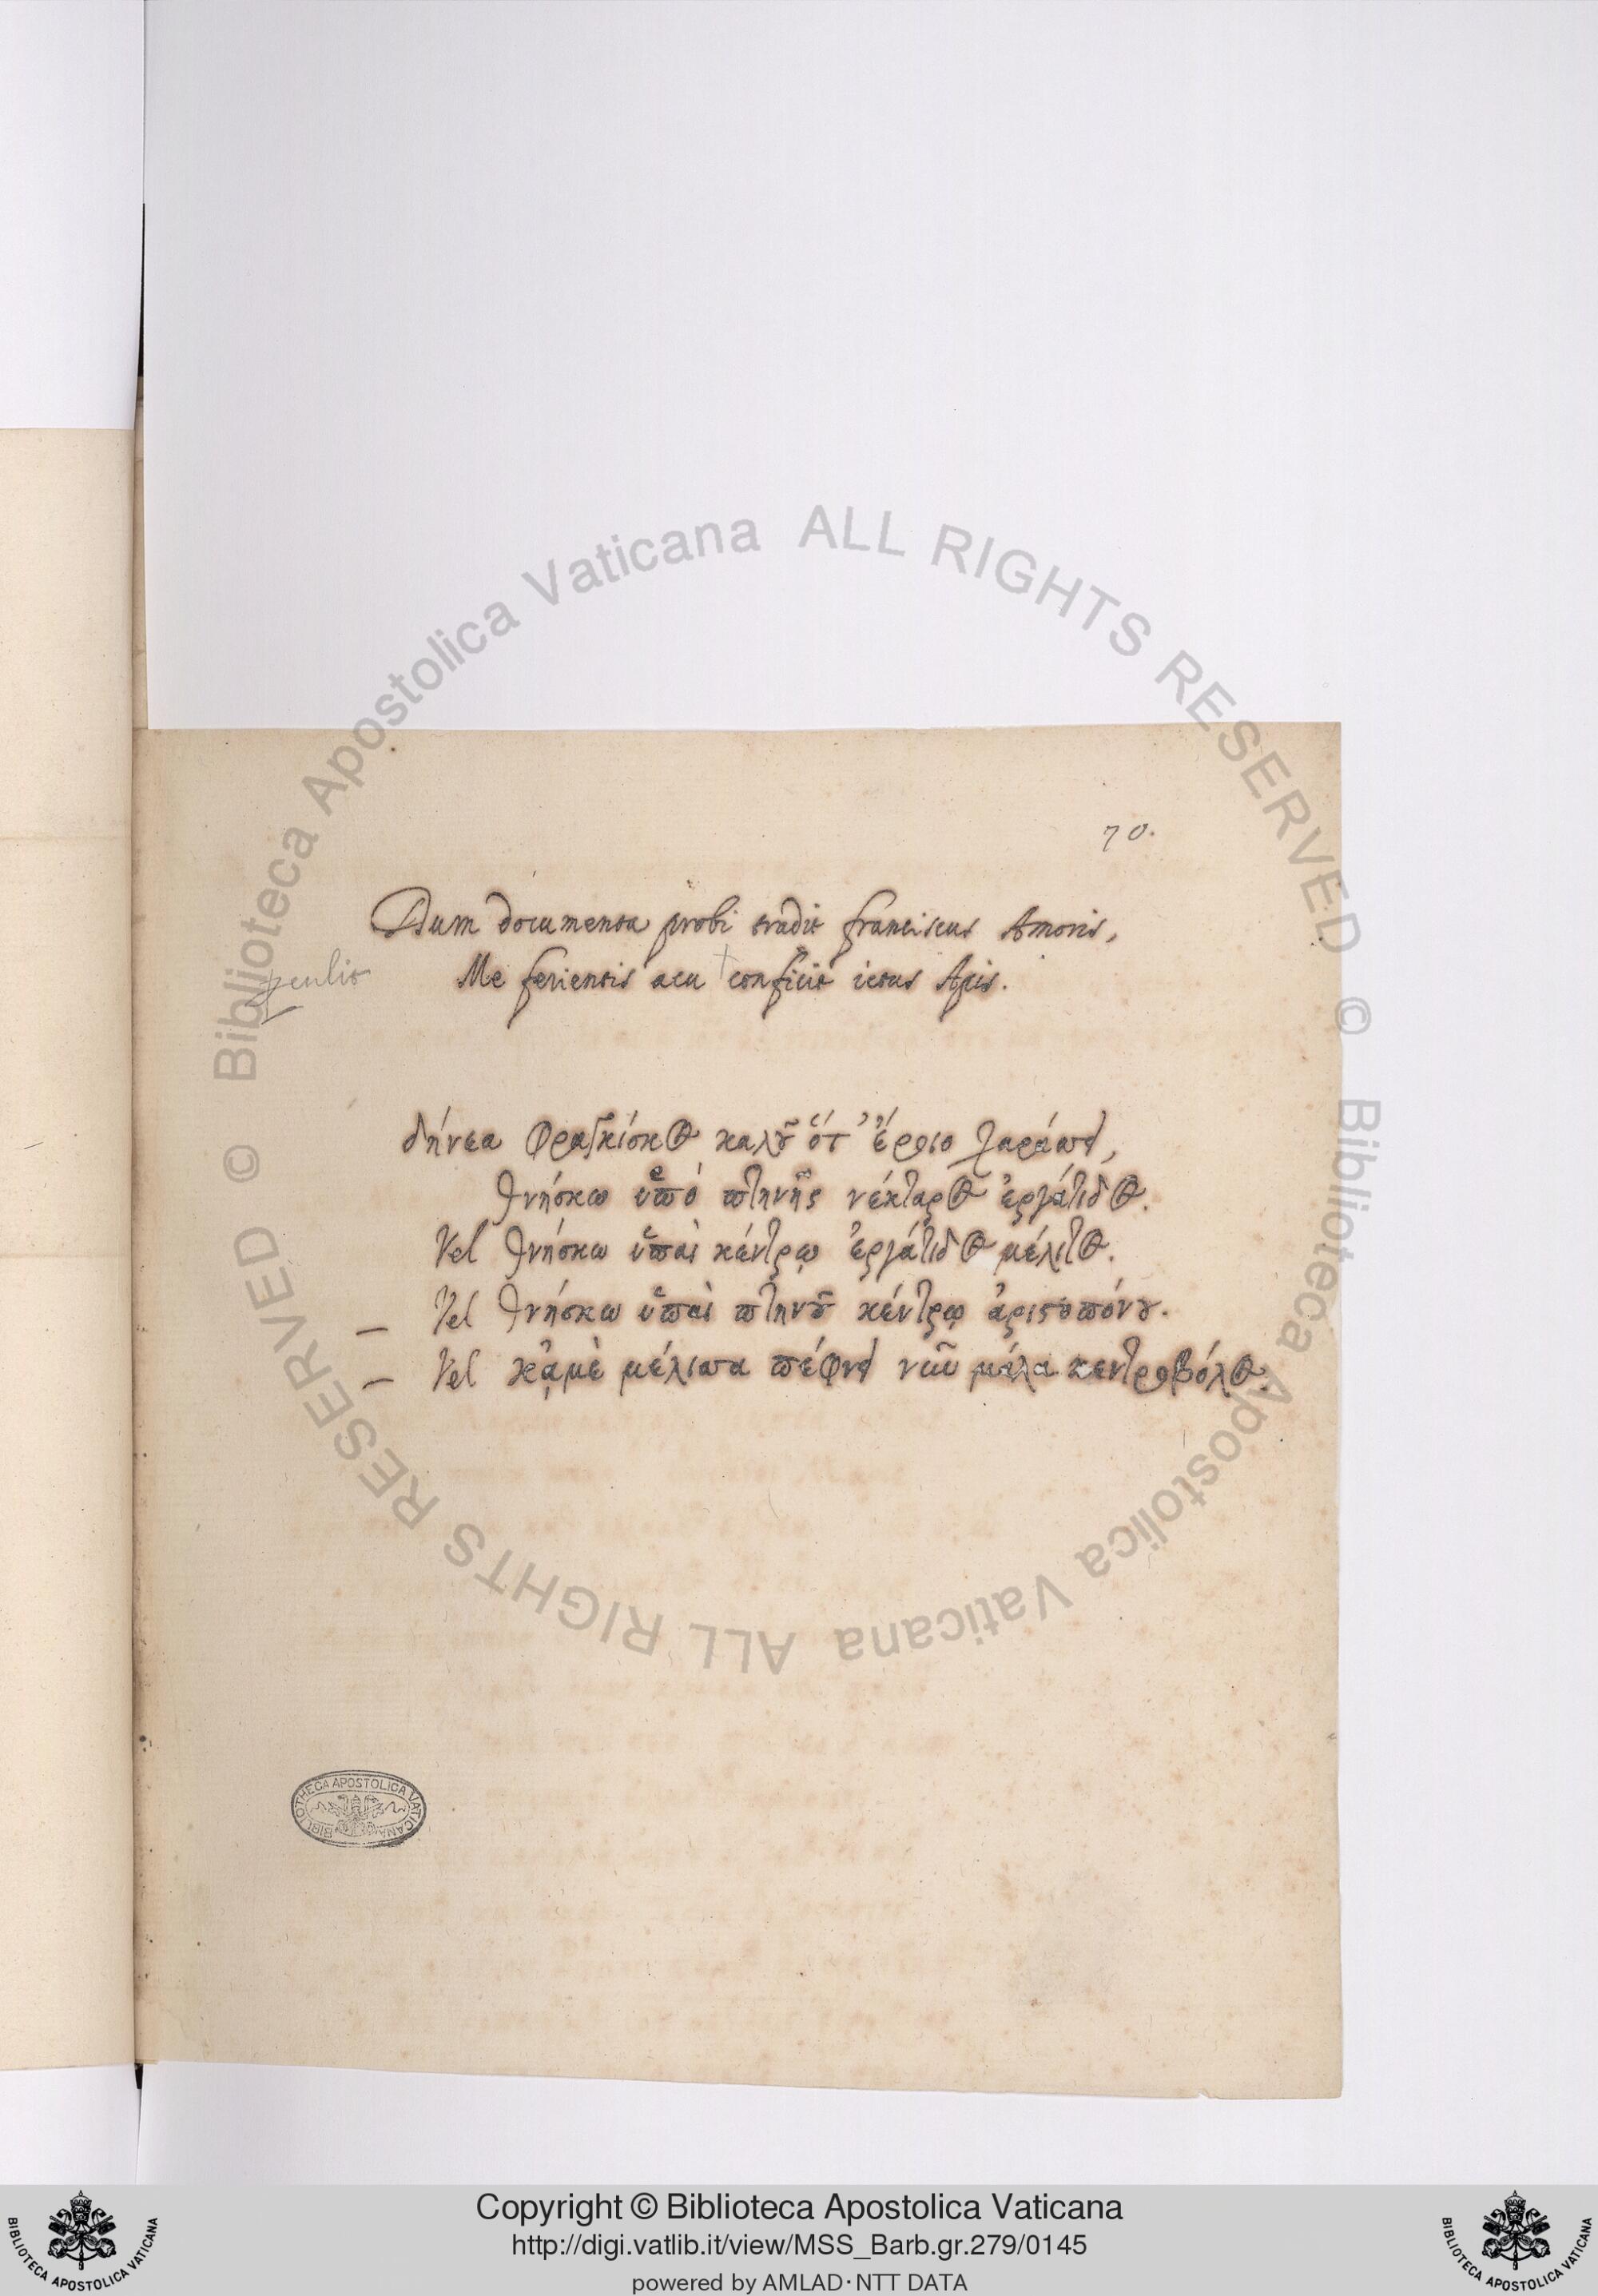 70.
Dum documenta probi tradit franciscus Amoris,
perculit
Me ferientis acu conficit ictus Apis.
δήνεα Φραγκίσκος καλοῦ ὅτ' ἔρωτο
θνήσκω ὑπὸ πτηνῆς νέκταρος ἐργάτιδος.
Vel θνήσκω ὑπαὶ κέντρῳ ἐργάτιδος μέλιτος.
— Vel θνήσκω ὑπαὶ πτηνοῦ κέντρῳ ἀριστοπόνου.
— Vel κᾀμὲ μέλισσα πέφνεν νῶι μάλα κεντροβόλος.
BIBLIOTHECA APOSTOLICA VATICANA
© Biblioteca Apostolica Vaticana ALL RIGHTS RESERVED © Biblioteca Apostolica Vaticana ALL RIGHTS RESERVED
Copyright © Biblioteca Apostolica Vaticana
http://digi.vatlib.it/view/MSS_Barb.gr.279/0145
powered by AMLAD·NTT DATA
BIBLIOTECA APOSTOLICA VATICANA
BIBLIOTECA APOSTOLICA VATICANA